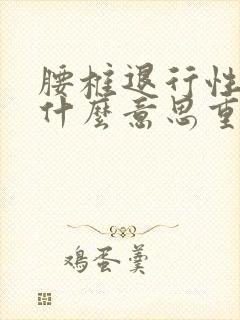 腰椎退行性
什麼意思重
鸡蛋羹